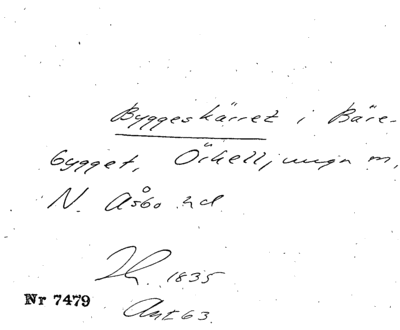 Byggeskärret i Bäre-
bygget, Örkelljunga m,
N. Åsbo hd
Lh. 1835
Nr 7479
Akt 63.